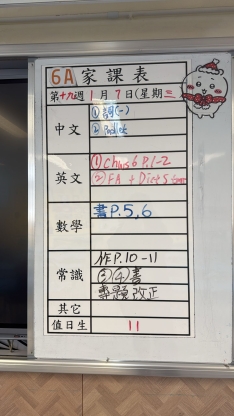 6A 家課表
第十九週 1 月 7 日(星期三
中文
① 詞(一)
② Padlet
英文
① Ch.ws 6 P.1-2
② FA + Dict 5
數學
書P.5,6
常識
作P.10-11
專題改正
其它
值日生 11